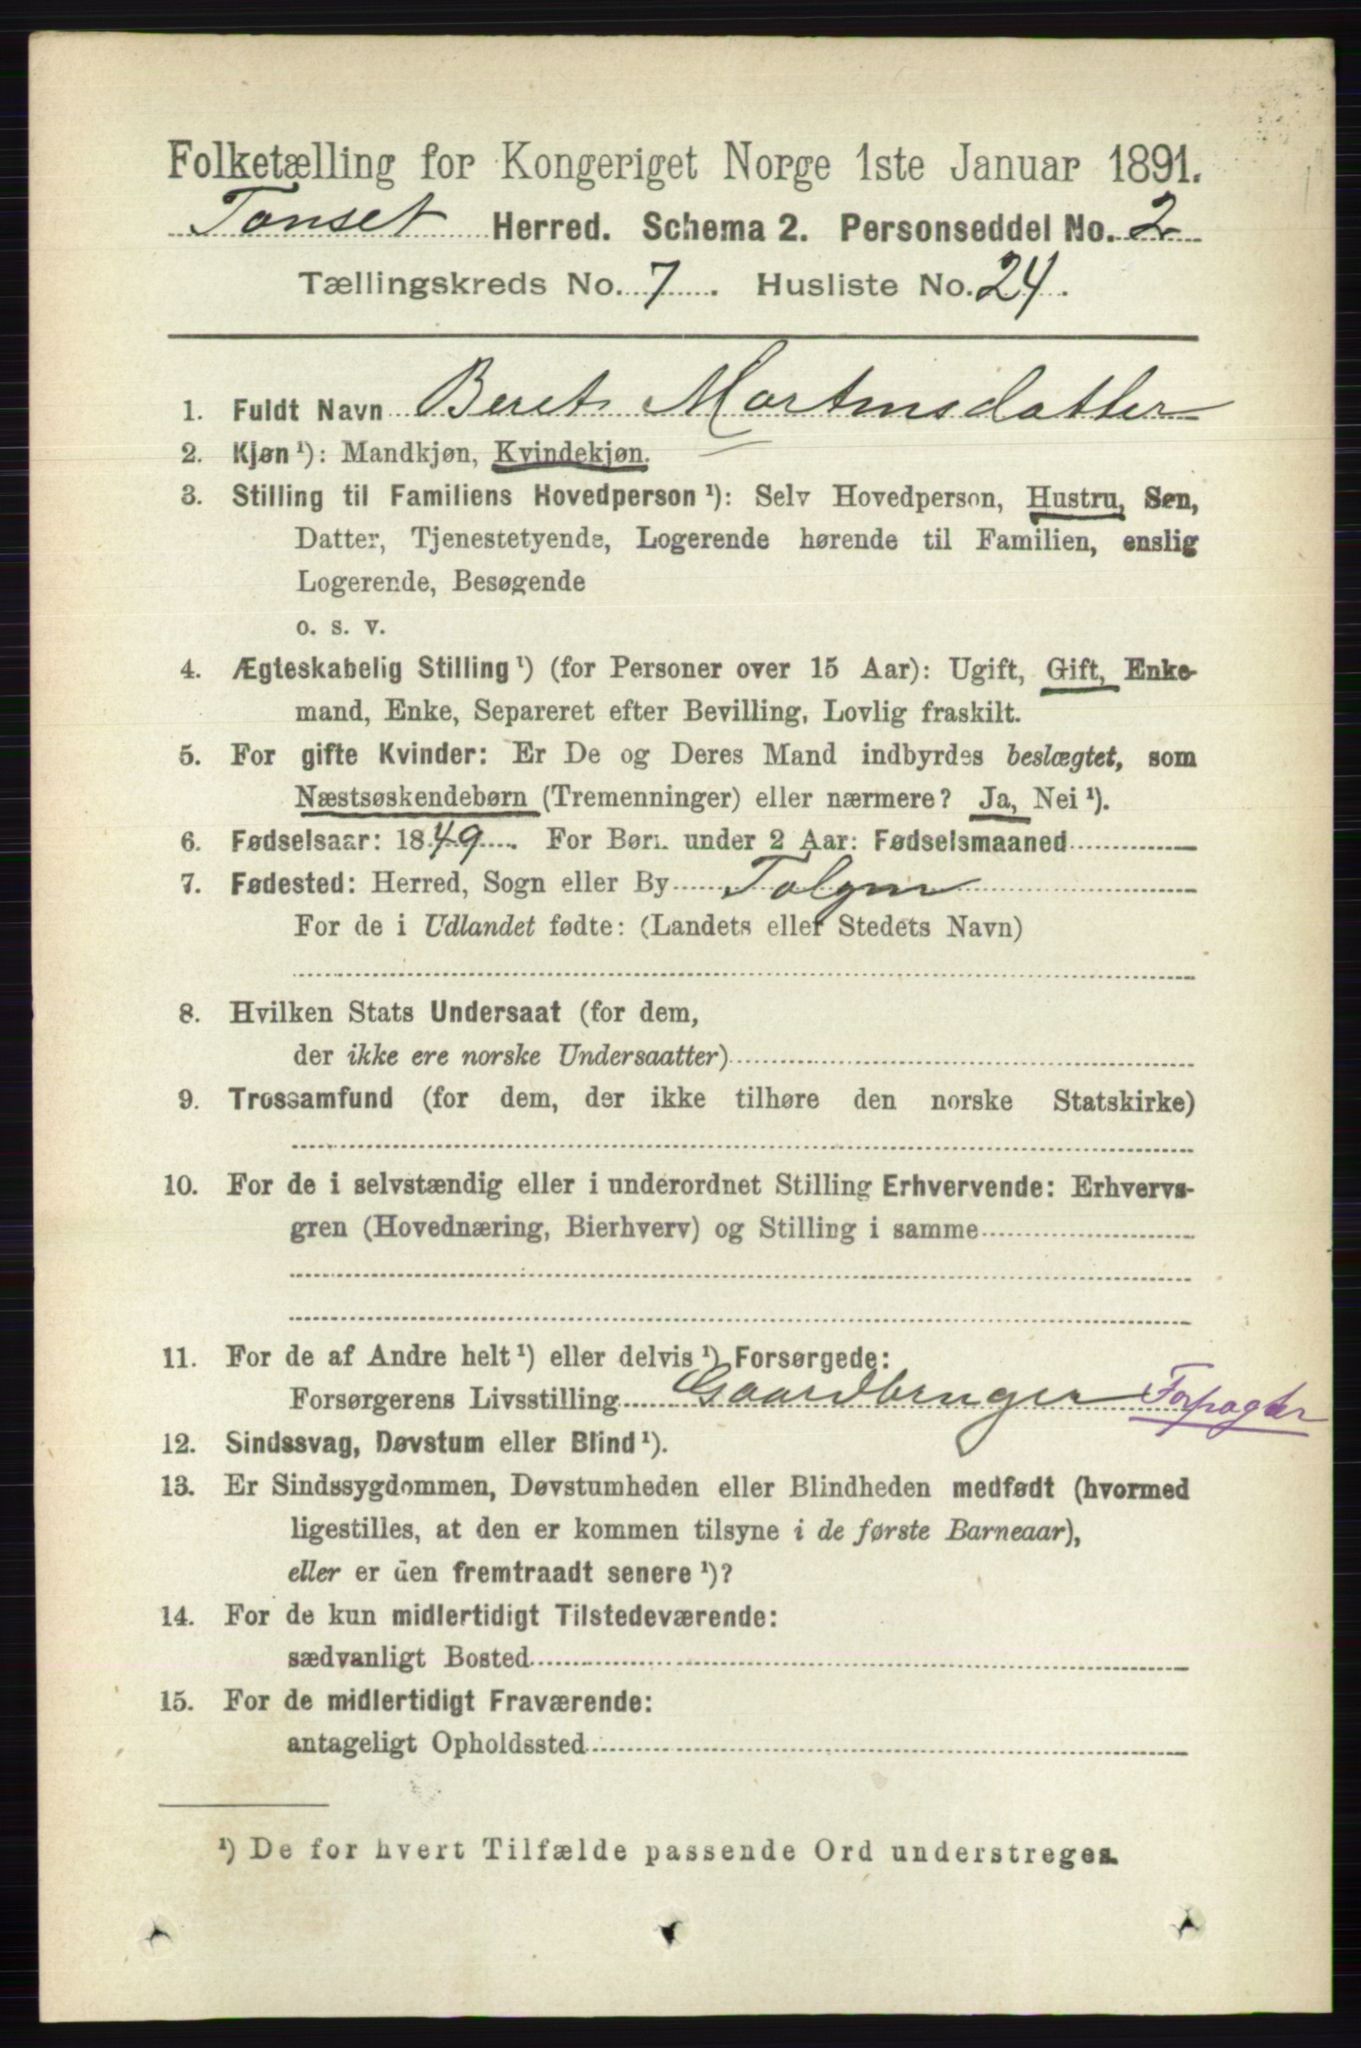 Folketælling for Kongeriget Norge 1ste Januar 1891.
Tønset Herred. Schema 2. Personseddel No. 2
Tællingskreds No. 7. Husliste No. 24.
1. Fuldt Navn Beret Martinsdatter
2. Kjøn ¹): Mandkjøn, Kvindekjøn.
3. Stilling til Familiens Hovedperson ¹): Selv Hovedperson, Hustru, Søn,
Datter, Tjenestetyende, Logerende hørende til Familien, enslig
Logerende, Besøgende
o. s. v.
4. Ægteskabelig Stilling ¹) (for Personer over 15 Aar): Ugift, Gift, Enke-
mand, Enke, Separeret efter Bevilling, Lovlig fraskilt.
5. For gifte Kvinder: Er De og Deres Mand indbyrdes beslægtet, som
Næstsøskendebørn (Tremenninger) eller nærmere? Ja, Nei ¹).
6. Fødselsaar: 1849. For Børn under 2 Aar: Fødselsmaaned
7. Fødested: Herred, Sogn eller By Tolgen
For de i Udlandet fødte: (Landets eller Stedets Navn)
8. Hvilken Stats Undersaat (for dem,
der ikke ere norske Undersaatter)
9. Trossamfund (for dem, der ikke tilhøre den norske Statskirke)
10. For de i selvstændig eller i underordnet Stilling Erhvervende: Erhvervs-
gren (Hovednæring, Bierhverv) og Stilling i samme
11. For de af Andre helt ¹) eller delvis ¹) Forsørgede:
Forsørgerens Livsstilling Gaardbruger Forpagter
12. Sindssvag, Døvstum eller Blind ¹).
13. Er Sindssygdommen, Døvstumheden eller Blindheden medfødt (hvormed
ligestilles, at den er kommen tilsyne i de første Barneaar),
eller er den fremtraadt senere ¹)?
14. For de kun midlertidigt Tilstedeværende:
sædvanligt Bosted
15. For de midlertidigt Fraværende:
antageligt Opholdssted
¹) De for hvert Tilfælde passende Ord understreges.